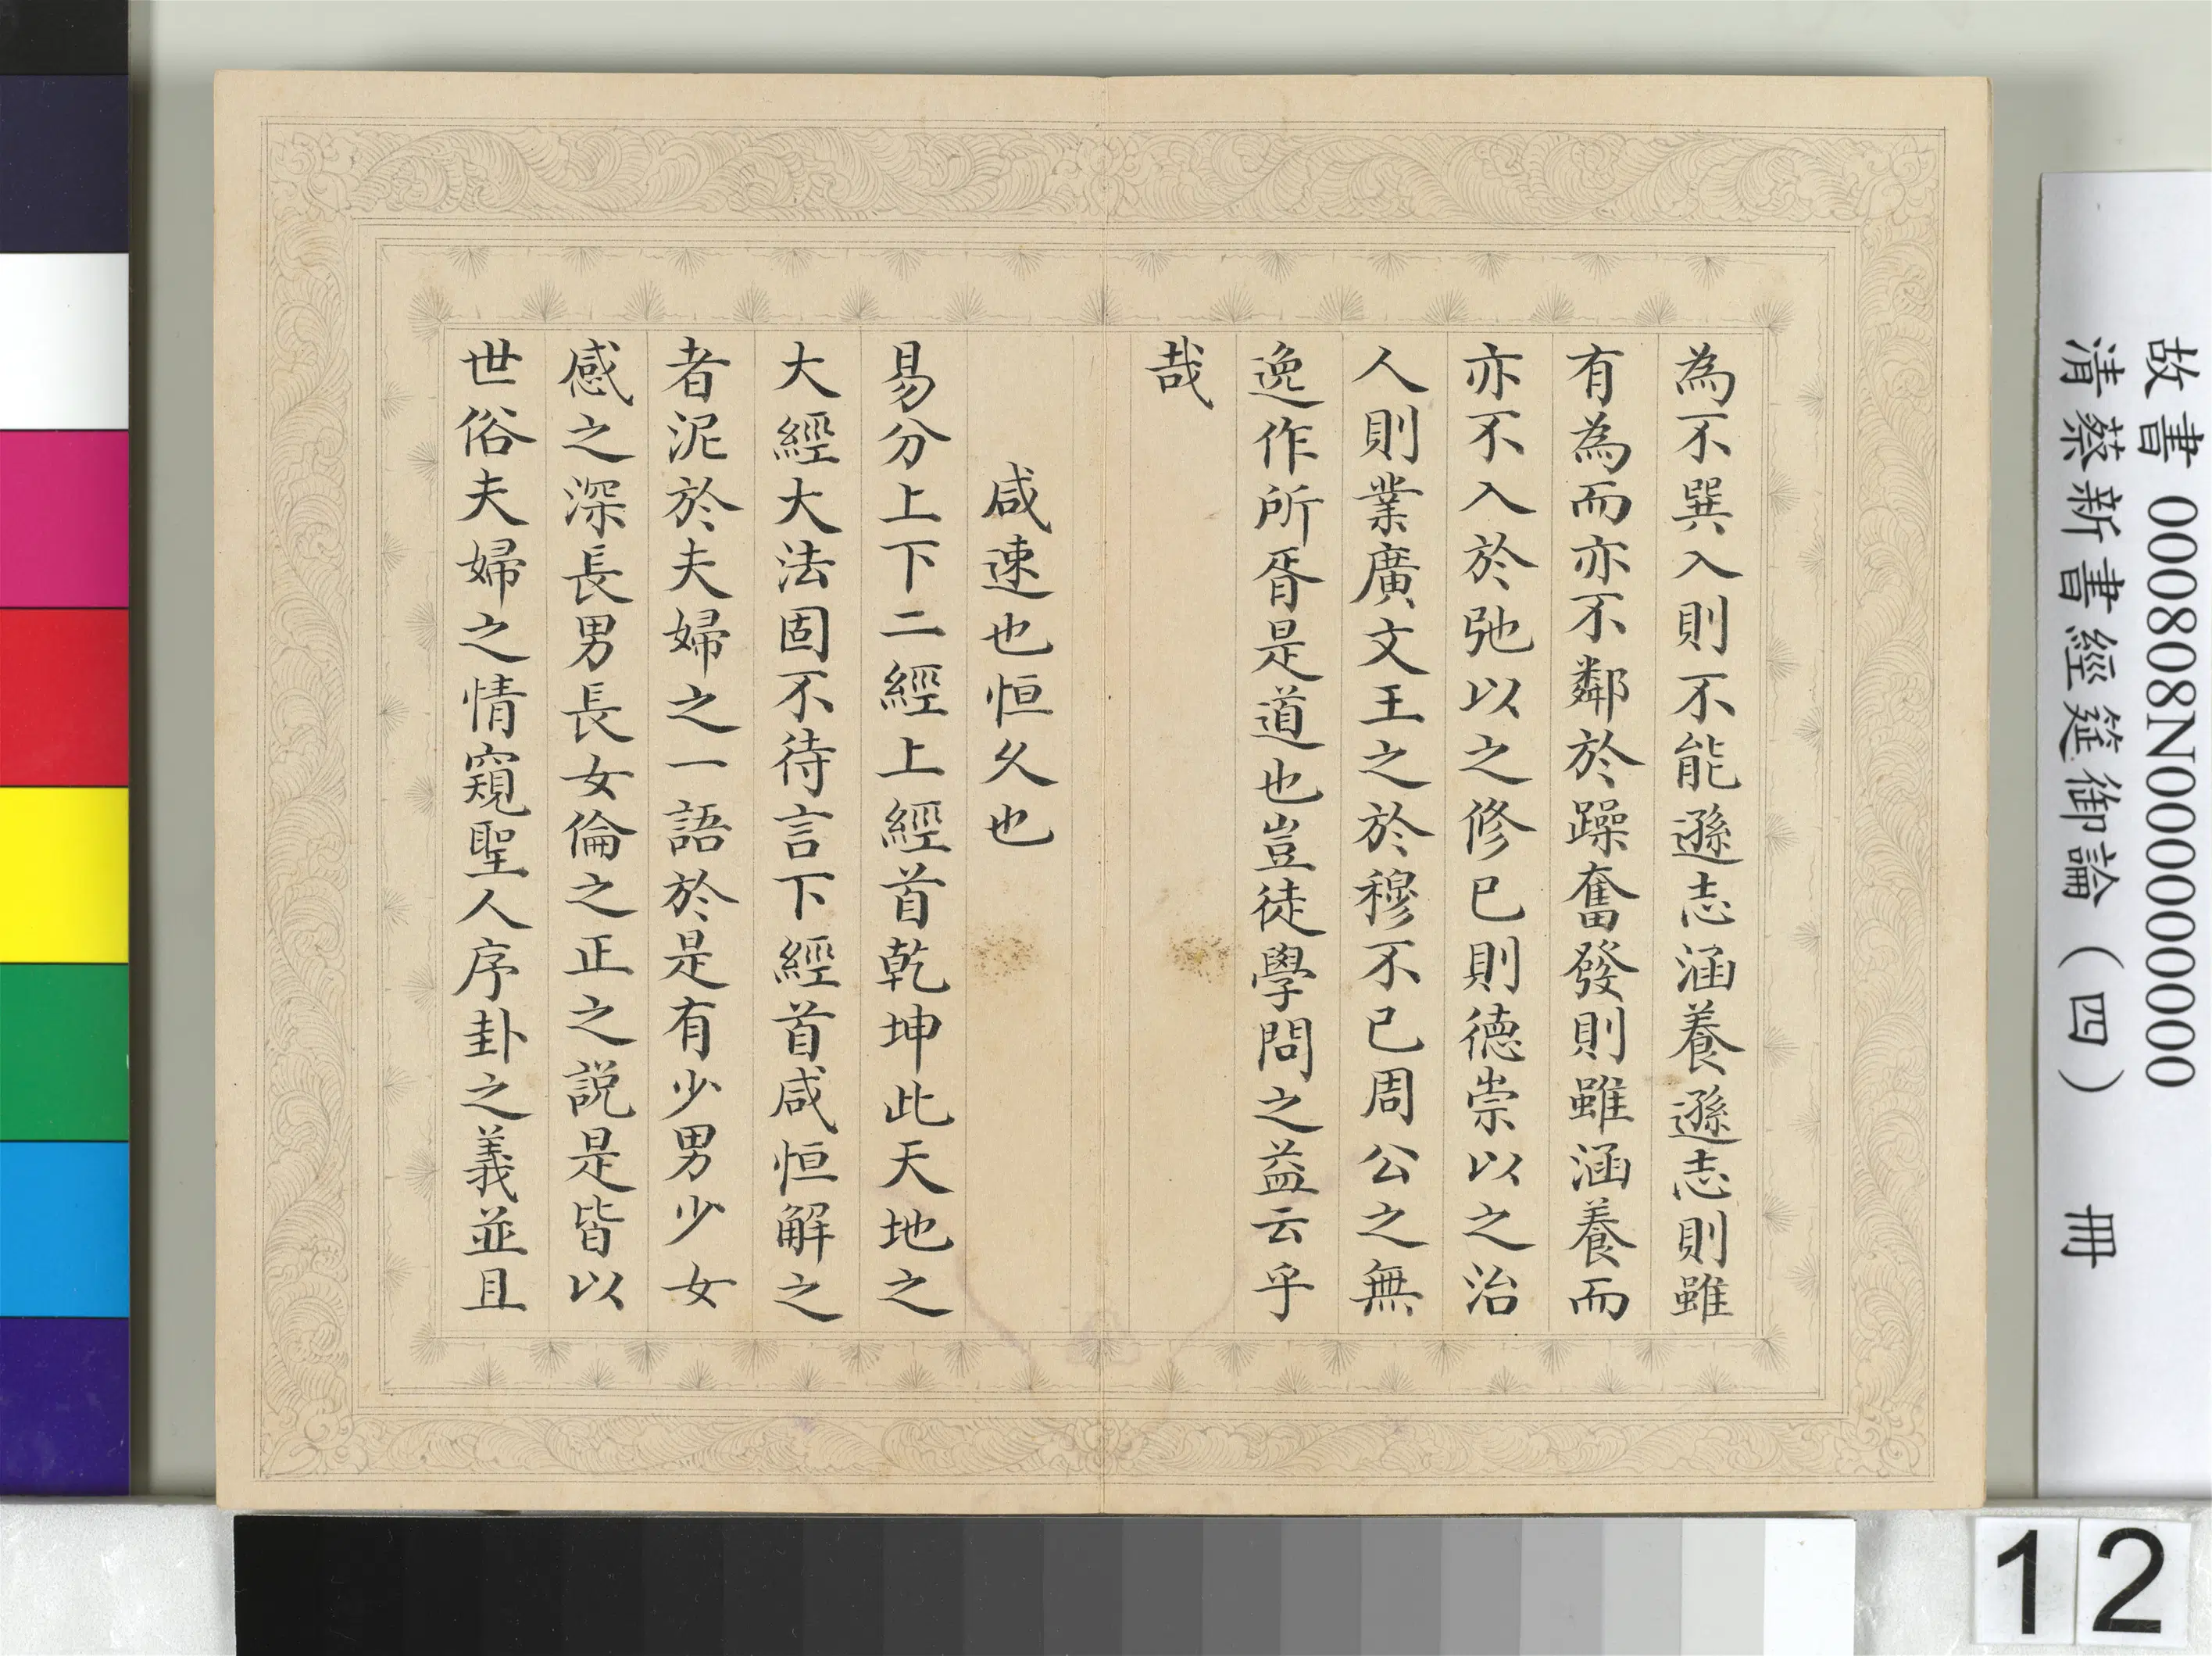 為不巽入則不能遜志涵養遜志則雖
有為而亦不鄰於躁奮發則雖涵養而
亦不入於弛以之修已則德崇以之治
人則業廣文王之於穆不已周公之無
逸作所胥是道也豈徒學問之益云乎
哉
咸速也恒久也
易分上下二經上經首乾坤此天地之
大經大法固不待言下經首咸恒解之
者泥於夫婦之一語於是有少男少女
感之深長男長女倫之正之說是皆以
世俗夫婦之情窺聖人序卦之義並且
故書 000808N000000000
清蔡新書經筵御論(四) 冊
12